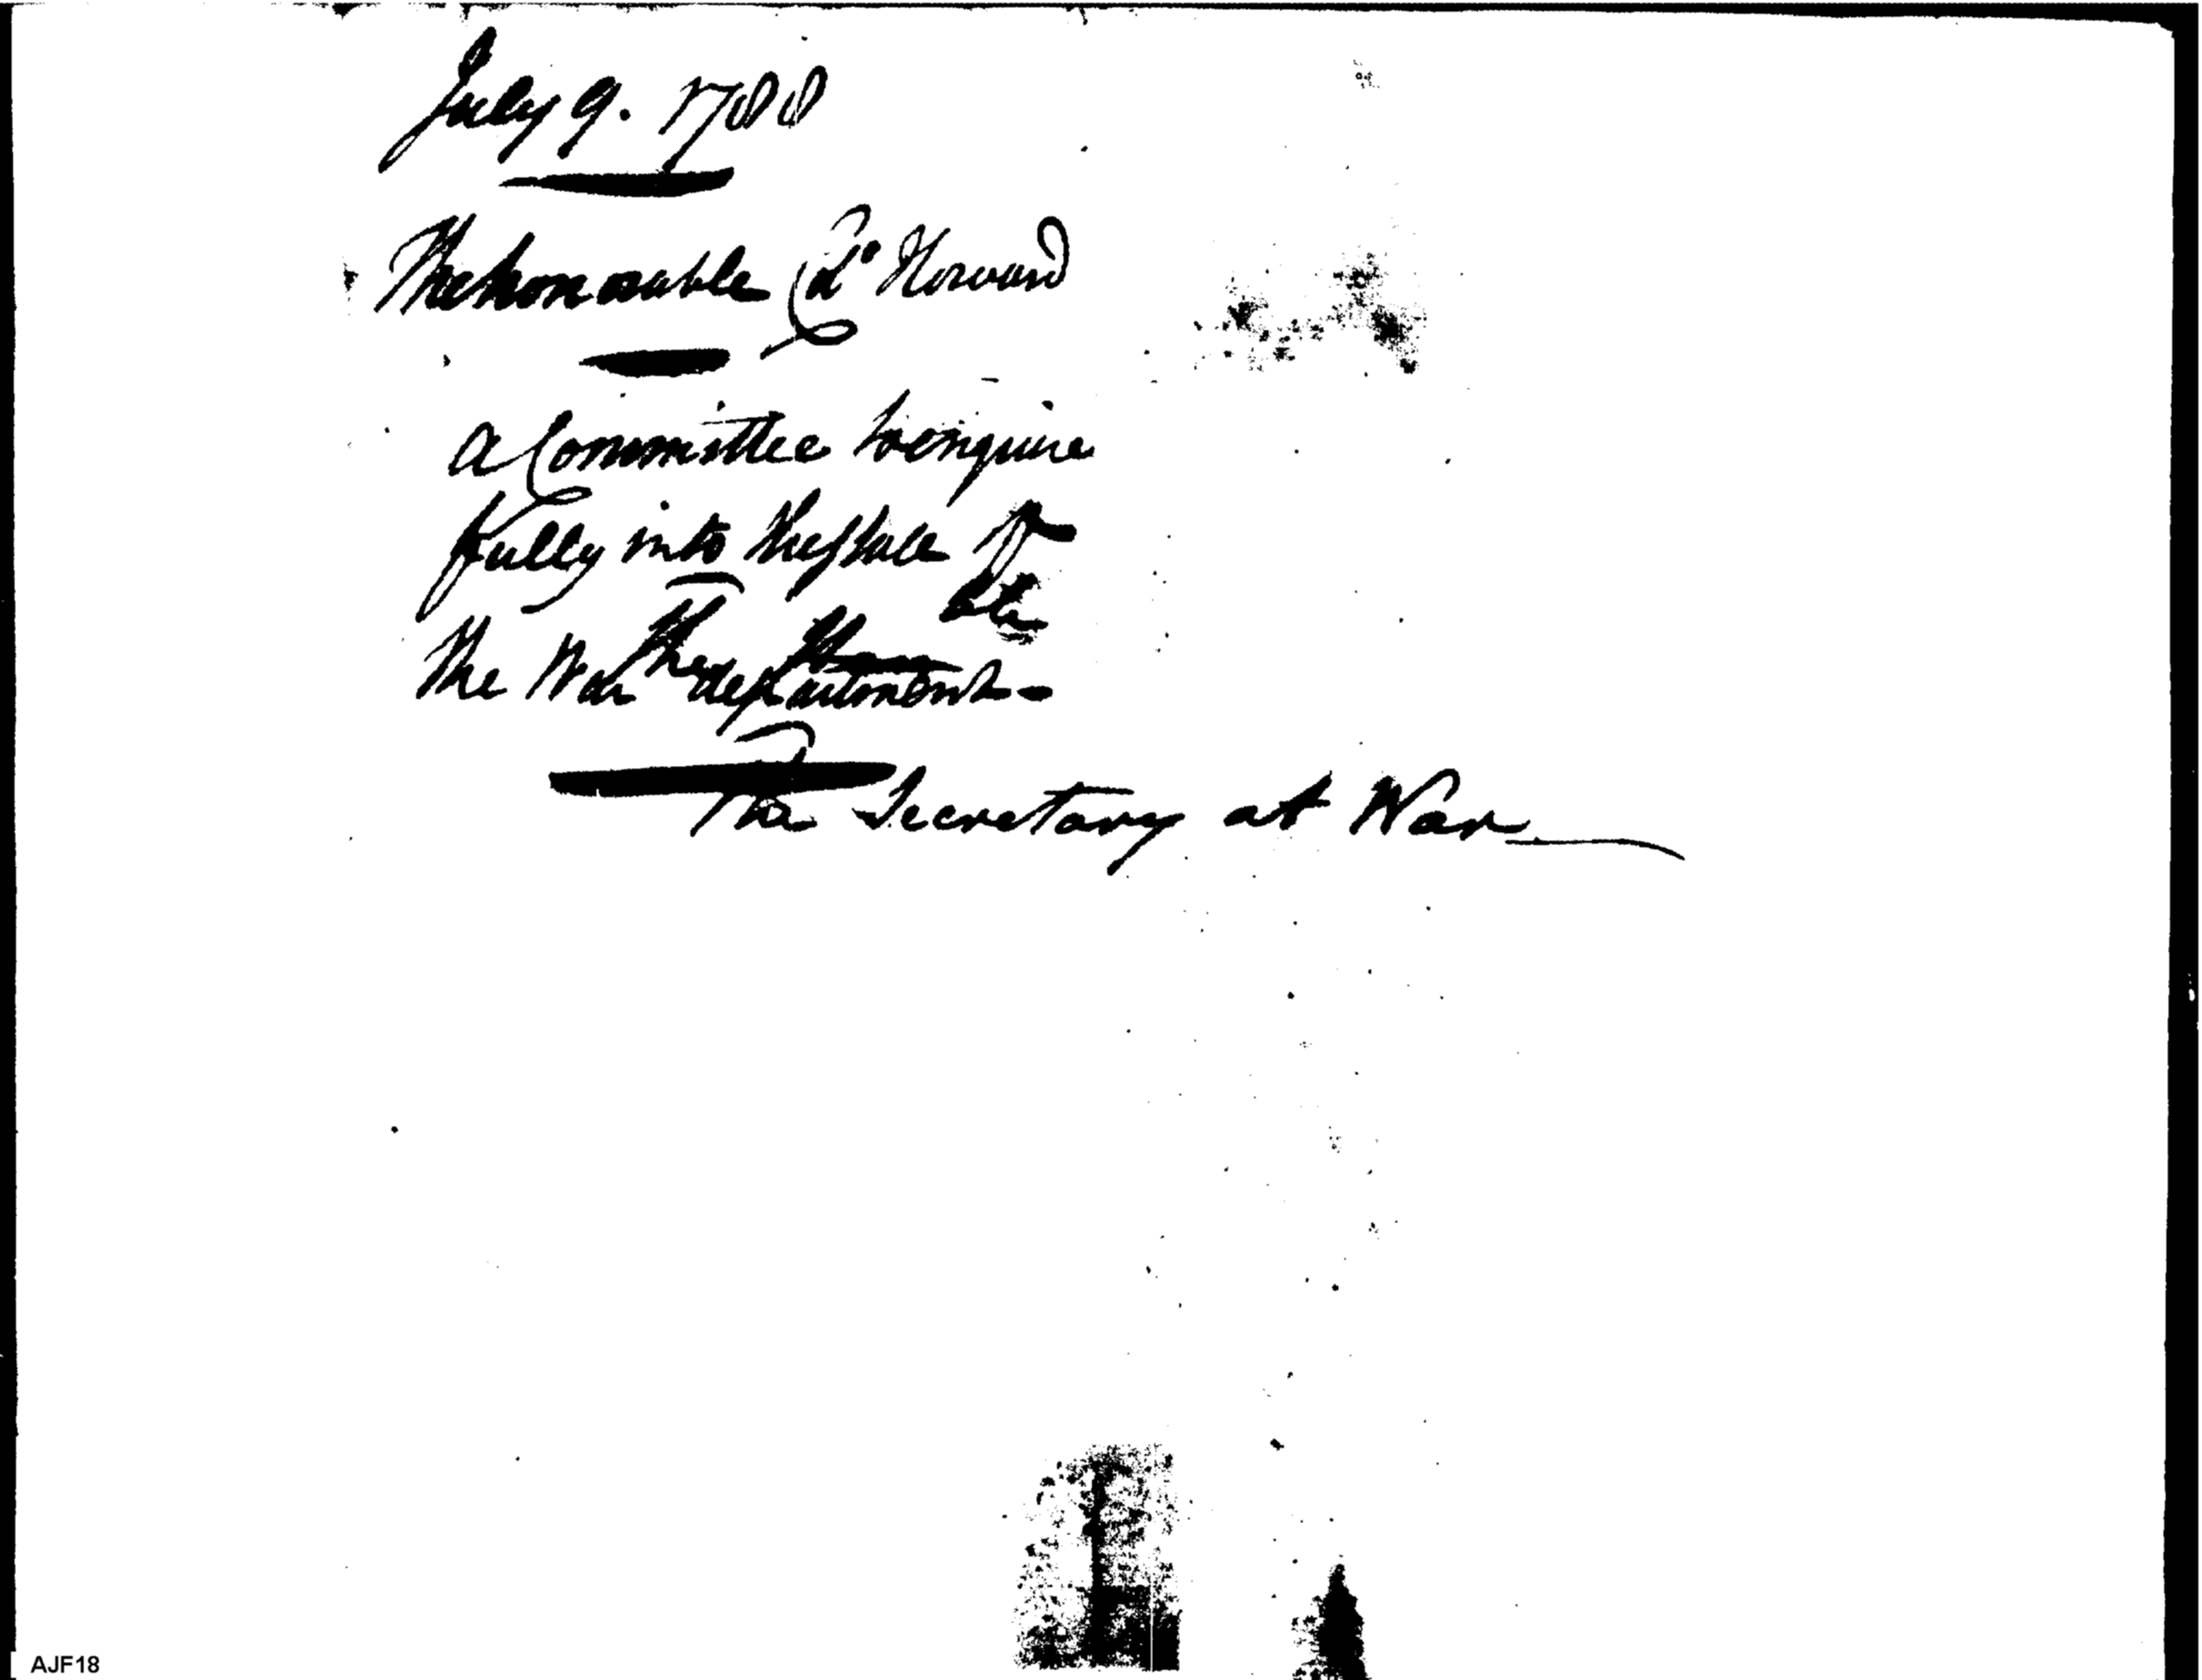 July 9. 1788
The honourable Col. Howard
a Committee to enquire
fully into the State of
the
the War the department-
The Secretary at War
AJF18